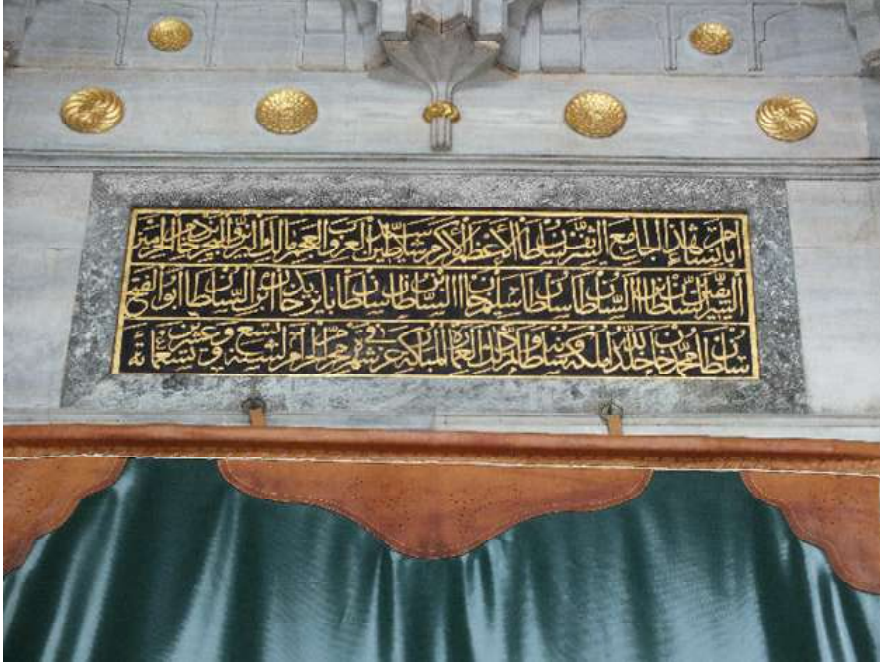 امر بانشاء هذا الجامع الشريف سلطان الاعظم الاكرم سلاطين العرب والعجم مالك البرين والبحرين خادم الحرمين
الشريفين السلطان بن السلطان سلطان خان ابن السلطان سلطان بايزيد خان ابن السلطان ابو الفتح
سلطان محمد خان خلد الله ملكه وسلطانه ذلك العمارة المباركة في غرة شهر محرم الحرام لسنة تسع وعشرين وتسعمائة